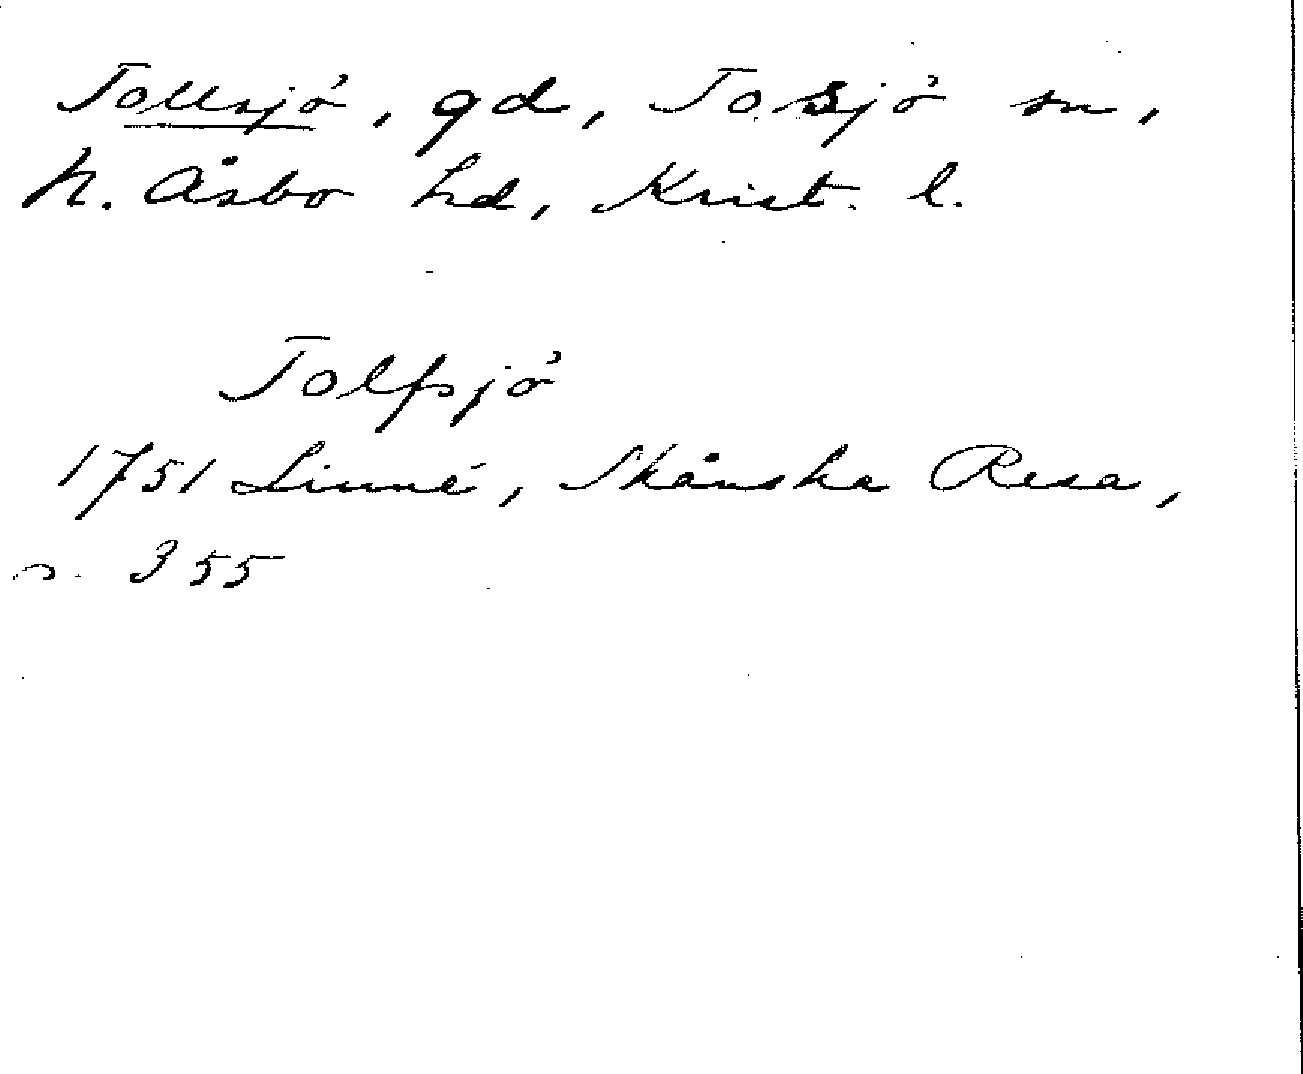 Tollsjö, gd, Tosjö sn,
N. Åsbo hd, Krist. l.
Tolfsjö
1751 Linné, Skånska Resa,
s. 355